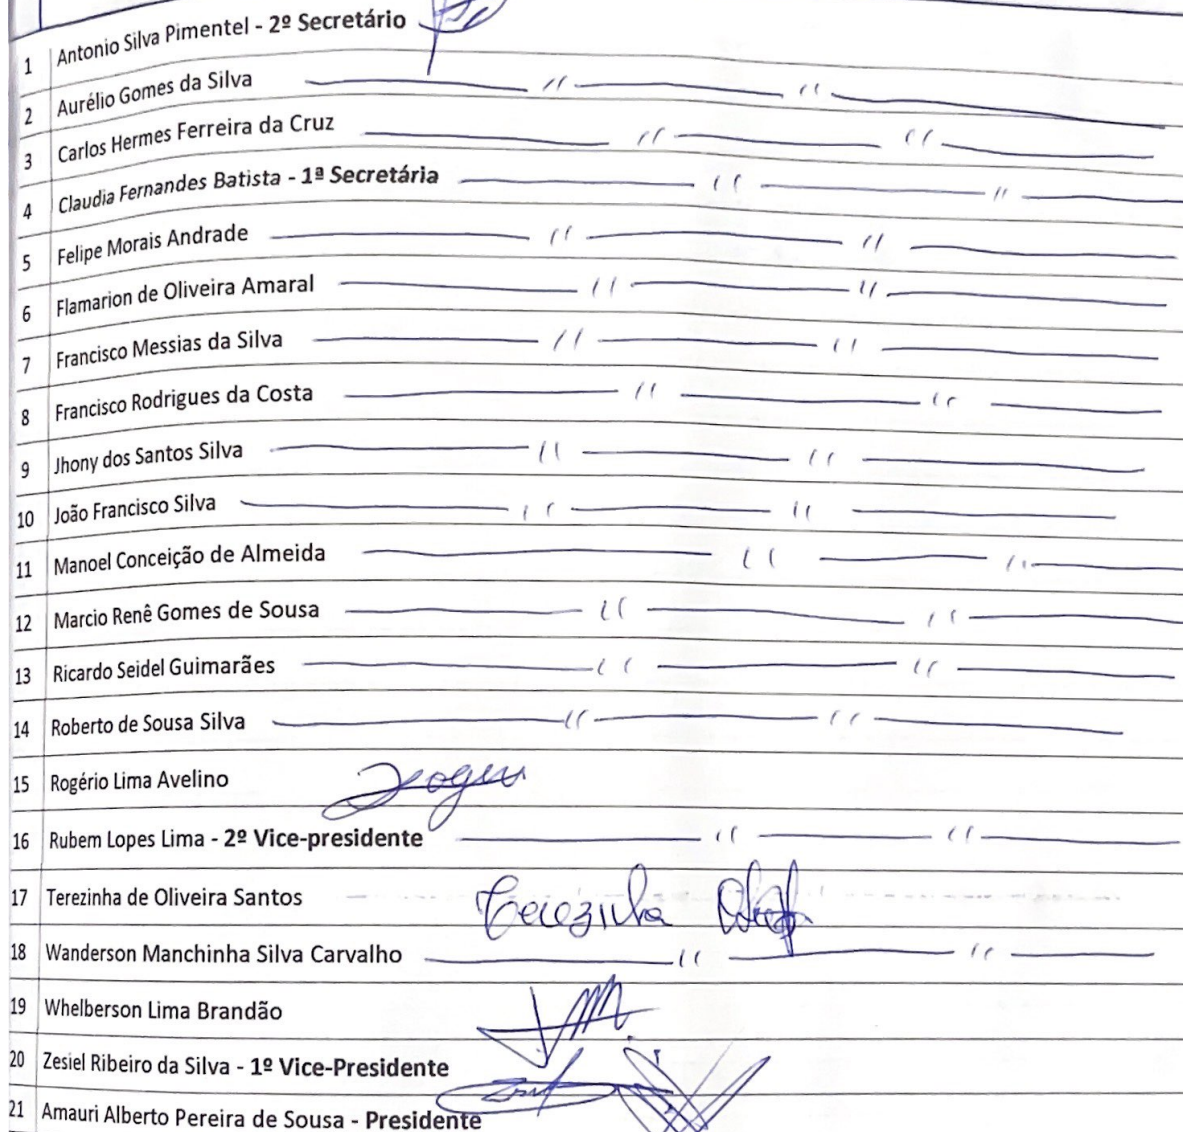 1 Antonio Silva Pimentel - 2º Secretário
2 Aurélio Gomes da Silva // //
3 Carlos Hermes Ferreira da Cruz // //
4 Claudia Fernandes Batista - 1ª Secretária // //
5 Felipe Morais Andrade // //
6 Flamarion de Oliveira Amaral // //
7 Francisco Messias da Silva // //
8 Francisco Rodrigues da Costa // //
9 Jhony dos Santos Silva // //
10 João Francisco Silva // //
11 Manoel Conceição de Almeida // //
12 Marcio Renê Gomes de Sousa // //
13 Ricardo Seidel Guimarães // //
14 Roberto de Sousa Silva // //
15 Rogério Lima Avelino
16 Rubem Lopes Lima - 2º Vice-presidente // //
17 Terezinha de Oliveira Santos Terezinha
18 Wanderson Manchinha Silva Carvalho // //
19 Whelberson Lima Brandão
20 Zesiel Ribeiro da Silva - 1º Vice-Presidente
21 Amauri Alberto Pereira de Sousa - Presidente